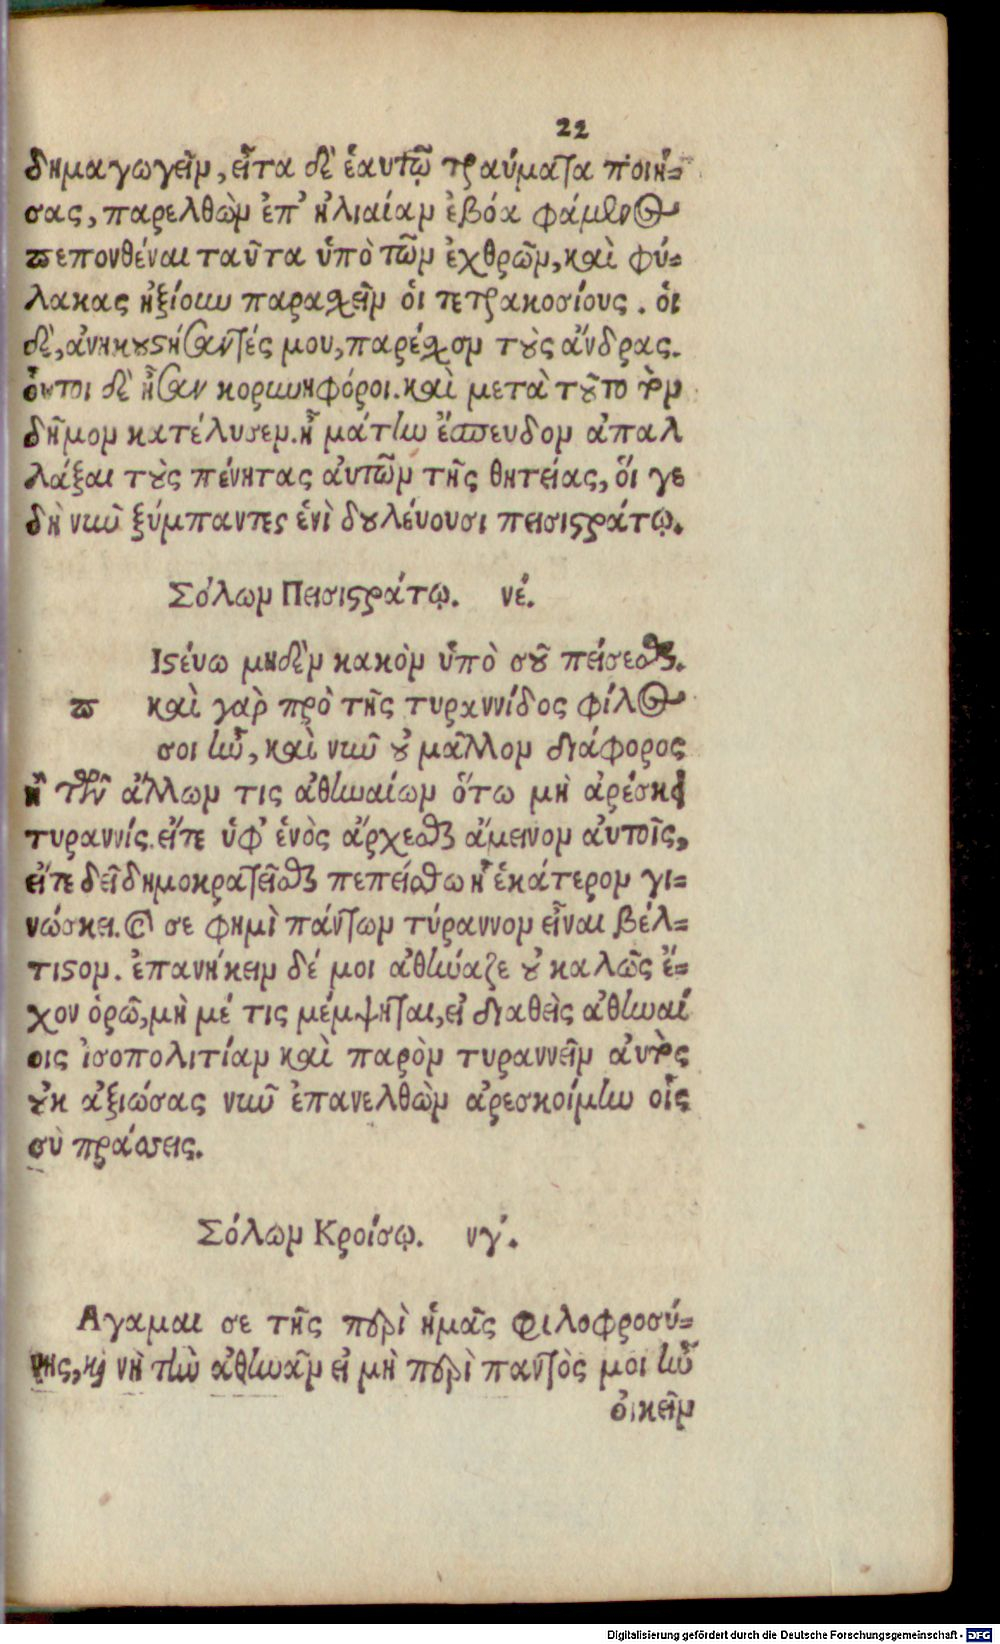 22
δημαγωγεῖν, εἶτα δὲ ἑαυτῷ τραύματα ποιή-
σας, παρελθὼν ἐπ' ἠλιαίαν ἐβόα φάμενος
πεπονθέναι ταῦτα ὑπὸ τῶν ἐχθρῶν, καὶ φύ-
λακας ἠξίουν παραχεῖν οἱ τετρακοσίους. οἱ
δὲ, ἀνηκουστήσαντές μου, παρέχον τοὺς ἄνδρας.
οὗτοι δὲ ἦσαν κορυνηφόροι. καὶ μετὰ τοῦτο τὸν
δῆμον κατέλυσεν. ἦ μάτην ἔσπευδον ἀπαλ
λάξαι τοὺς πένητας αὐτῶν τῆς θητείας, οἵ γε
δὴ νῦν ξύμπαντες ἑνὶ δουλεύουσι πεισιστράτῳ.
Σόλων Πεισιστράτῳ. νέ.
Ιστεύω μηδὲν κακὸν ὑπὸ σοῦ πείσεσθαι.
π καὶ γὰρ πρὸ τῆς τυραννίδος φίλος
σοι ἦν, καὶ νῦν οὐ μᾶλλον διάφορος
ἢ τῶν ἄλλων τις ἀθηναίων ὅτω μὴ ἀρέσκει
τυραννίς. εἴτε ὑφ' ἑνὸς ἄρχεσθαι ἄμεινον αὐτοῖς,
εἴτε δεῖ δημοκρατεῖσθαι πεπείσθω ἢ ἑκάτερον γι-
νώσκει. καὶ σε φημὶ πάντων τύραννον εἶναι βέλ-
τιστον. ἐπανήκειν δέ μοι ἀθήναζε οὐ καλῶς ἔ-
χον ὁρῶ, μὴ μέ τις μέμψηται, εἰ διαθεὶς ἀθηναί
οις ἰσοπολιτίαν καὶ παρὸν τυραννεῖν αὐτὸς
οὐκ ἀξιώσας νῦν ἐπανελθὼν ἀρεσκοίμην οἷς
σὺ πράσσεις.
Σόλων Κροίσῳ. νγ.
Αγαμαι σε τῆς περὶ ἡμᾶς φιλοφροσύ-
νης, καὶ νὴ τὴν ἀθηνᾶν εἰ μὴ περὶ παντὸς μοι ἦν
οἰκεῖν
Digitalisierung gefördert durch die Deutsche Forschungsgemeinschaft - DFG